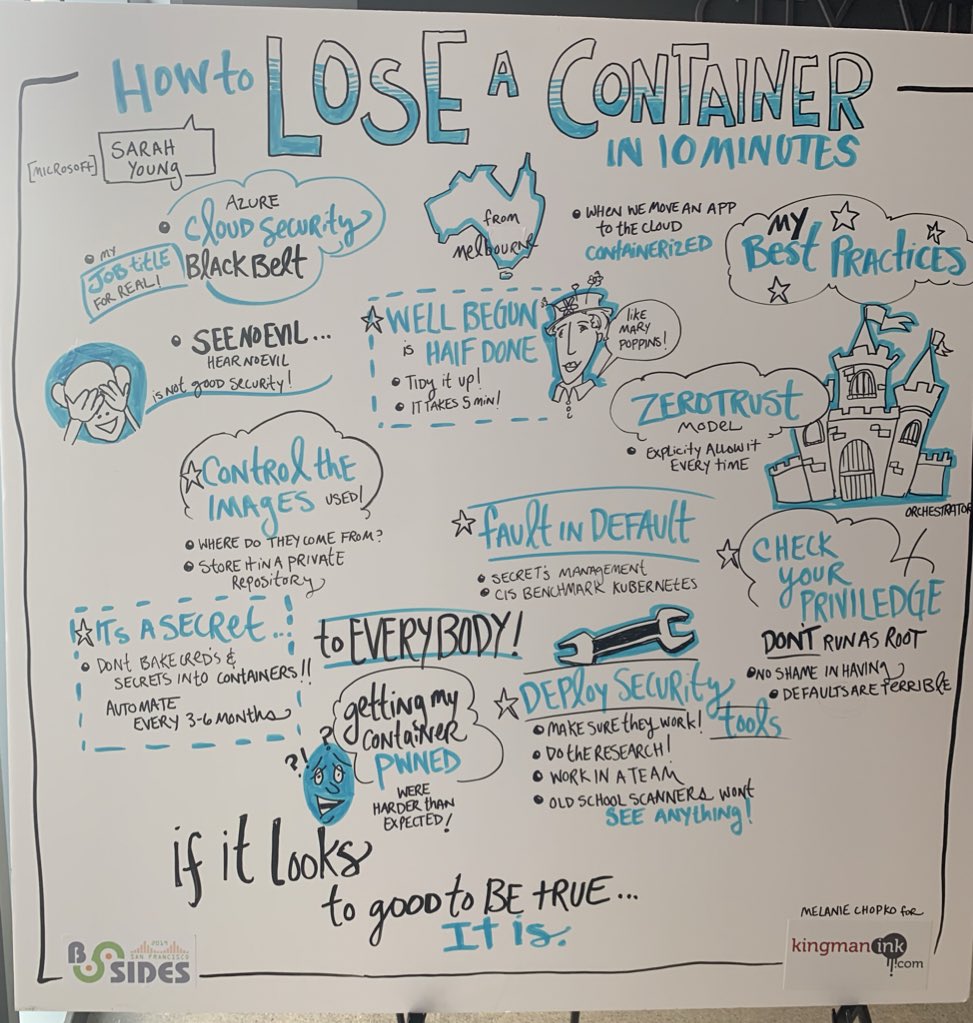 HOW to LOSE A CONTAINER
IN 10 MINUTES
[MICROSOFT]
SARAH
YOUNG
AZURE
CLOUD SECURITY
BLACK BELT
MY
JOB TITLE
FOR REAL!
from
Melbourne
WHEN WE MOVE AN APP
TO THE CLOUD
CONTAINERIZED
MY
BEST PRACTICES
SEE NO EVIL...
HEAR NO EVIL
is NOT good SECURITY!
WELL BEGUN
is HALF DONE
TIDY it UP!
IT TAKES 5 MIN!
like
MARY
POPPINS!
ZERO TRUST
MODEL
EXPLICITY ALLOW IT
EVERY TIME
ORCHESTRATOR
CONTROL the
IMAGES USED!
WHERE DO THEY COME FROM?
STORE it IN A PRIVATE
REPOSITORY
FAULT IN DEFAULT
SECRET'S MANAGEMENT
CIS BENCHMARK KUBERNETES
CHECK
YOUR
PRIVILEDGE
DON'T RUN AS ROOT
NO SHAME IN HAVING
DEFAULTS ARE TERRIBLE
ITS A SECRET...
to EVERYBODY!
DONT BAKE CRED'S &
SECRETS INTO CONTAINERS!!
AUTOMATE
EVERY 3-6 MONTHS
?!
?
getting my
CONTAINER
PWNED
WERE
HARDER THAN
EXPECTED!
DEPLOY SECURITY
tools
MAKE SURE THEY WORK!
DO THE RESEARCH!
WORK IN A TEAM
OLD SCHOOL SCANNERS WONT
SEE ANYTHING!
if it looks
to good to BE TRUE...
It is.
MELANIE CHOPKO for
kingman ink
.com
2019
SAN FRANCISCO
BSIDES